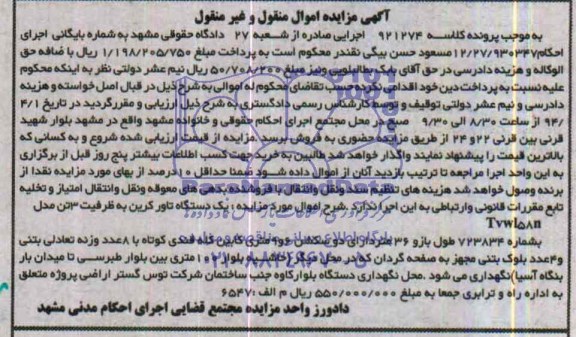 آگهی مزایده اموال منقول و غیر منقول
به موجب پرونده کلاسه ۹۲۱۲۷۴ اجرایی صادره از شعبه ۲۷ دادگاه حقوقی مشهد به شماره بایگانی اجرای
احکام ۱۲/۲۷/۹۳۰۳۴۷ مسعود حسن بیگی نقندر محکوم است به پرداخت مبلغ ۱/۱۹۸/۲۰۵/۷۵۰ ریال با اضافه حق
الوکاله و هزینه دادرسی در حق آقای بابک طالبلویی و نیز مبلغ ۵۰/۷۰۸/۲۰۰ ریال نیم عشر دولتی نظر به اینکه محکوم
علیه نسبت به پرداخت دین خود اقدامی نکرده حسب تقاضای محکوم له اموالی به شرح ذیل در قبال اصل خواسته و هزینه
دادرسی و نیم عشر دولتی توقیف و توسط کارشناس رسمی دادگستری به شرح ذیل ارزیابی و مقرر گردید در تاریخ ۴/۱
/۹۴ از ساعت ۸/۳۰ الی ۹/۳۰ صبح در محل مجتمع اجرای احکام حقوقی و خانواده مشهد واقع در مشهد بلوار شهید
قرنی بین قرنی ۲۲ و ۲۴ از طریق مزایده حضوری به فروش برسد. مزایده از قیمت ارزیابی شده شروع و به کسانی که
بالاترین قیمت را پیشنهاد نمایند واگذار خواهد شد. طالبین به خرید جهت کسب اطلاعات بیشتر پنج روز قبل از برگزاری
به این واحد اجرا مراجعه تا ترتیب بازدید آنان از اموال داده شود ضمنا حداقل ۱۰ درصد از بهای مورد مزایده نقدا از
برنده وصول خواهد شد هزینه های تنظیم سند ونقل وانتقال با فروشنده بدهی های معوقه ونقل وانتقال امتیاز و تخلیه
تابع مقررات قانونی وارتباطی به این اجرا ندارد. شرح اموال مورد مزایده : یک دستگاه تاور کرین به ظرفیت ۳تن مدل
بشماره ۷۲۳۸۳۴ طول بازو ۳۶ متر دارای دو سکشن کابین تله قندی کوتاه با ۸عدد وزنه تعادلی بتنی
و۴عدد بلوک بتنی مجهز به صفحه گردان که در محل دیگر (حاشیه بلوار ۱۰۰ متری بین بلوار طبرسی تا میدان بار
بنگاه آسیا)نگهداری می شود .محل نگهداری دستگاه بلوارکاوه جنب ساختمان شرکت توس گستر اراضی پروژه متعلق
به اداره راه و ترابری جمعا به مبلغ ۵۵۰/۰۰۰/۰۰۰ ریال م الف :۶۵۴۷
دادورز واحد مزایده مجتمع قضایی اجرای احکام مدنی مشهد